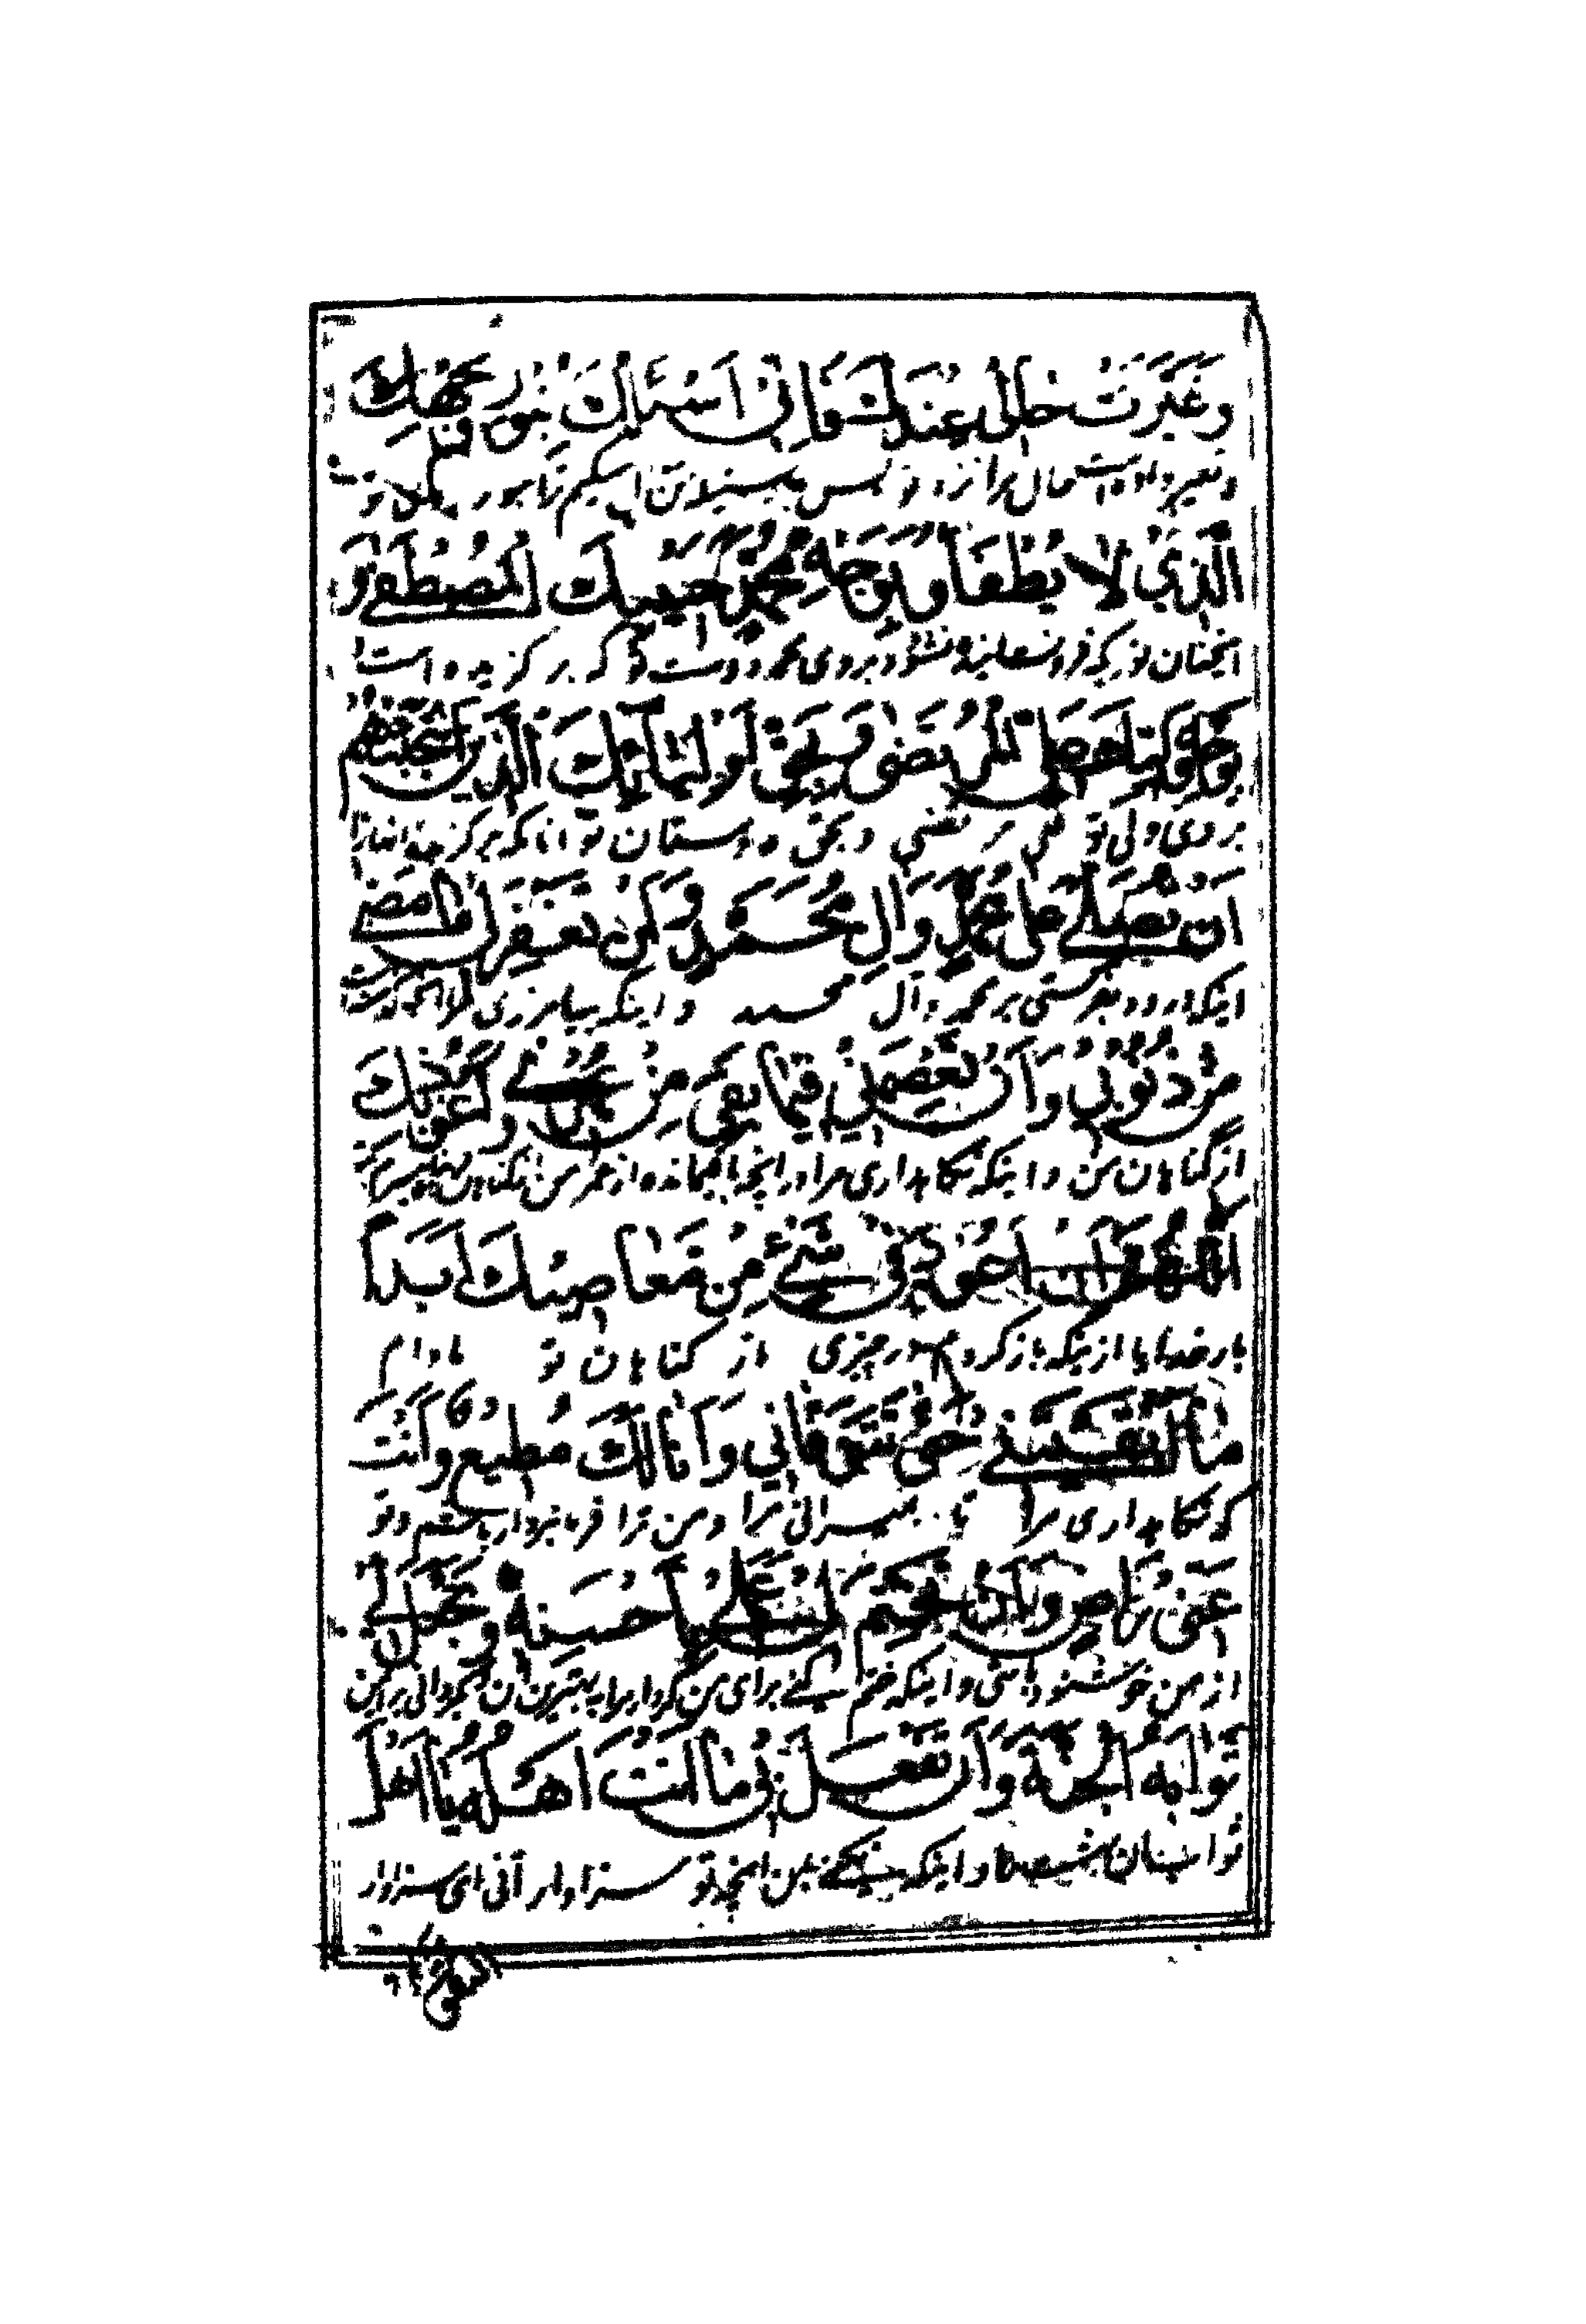 وَغَيَّرَتْ حَالِي عِنْدَكَ فَاِنِّي اَسْئَلُكَ بِنُورِ وَجْهِكَ
و تغییر داده است حال مرا نزد تو پس بدرستیکه من سؤال میکنم ترا بنور تو
الَّذِي لَا يُطْفَأُ وَبِوَجْهِ مُحَمَّدٍ حَبِيبِكَ الْمُصْطَفٰى وَ
انچنان نوریکه فرو نشانیده نشود و بروی محمد دوست تو که برگزیده است
بِوَجْهِ وَلِيِّكَ عَلِيٍّ الْمُرْتَضٰى وَبِحَقِّ اَوْلِيَائِكَ الَّذِينَ انْتَجَبْتَهُمْ
بروی ولی تو علی مرتضی و بحق دوستان تو انانکه برگزیده انها را
اَنْ تُصَلِّيَ عَلٰى مُحَمَّدٍ وَاٰلِ مُحَمَّدٍ وَاَنْ تَغْفِرَ لِي مَا مَضٰى
اینکه درود بفرستی بر محمد و آل محمد و اینکه بیامرزی مرا انچه گذشت
مِنْ ذُنُوبِي وَاَنْ تَعْصِمَنِي فِيمَا بَقِيَ مِنْ عُمُرِي وَاَعُوذُ بِكَ
از گناهان من و اینکه نگاهداری مرا در انچه باقیمانده از عمر من
اَللّٰهُمَّ اَنْ اَعُودَ فِي شَيْءٍ مِنْ مَعَاصِيكَ اَبَدًا
بار خدایا از اینکه باز گردم در چیزی از گناهان تو مادام
مَا اَبْقَيْتَنِي حَتّٰى تَتَوَفَّانِي وَاَنَا لَكَ مُطِيعٌ وَاَنْتَ
که نگاهداری مرا تا بمیرانی مرا و من ترا فرمانبردار باشم و تو
عَنِّي رَاضٍ وَاَنْ تَخْتِمَ لِي عَمَلِي بِاَحْسَنِهِ وَتَجْعَلَ لِي
از من خوشنود باشی و اینکه ختم کنی برای من کردار مرا به بهترین ان و بگردانی برای من
ثَوَابَهُ الْجَنَّةَ وَاَنْ تَفْعَلَ بِي مَا اَنْتَ اَهْلُهُ يَا اَهْلَ
ثواب بهشت را و اینکه بکنی بمن انچه تو سزاوار آنی ای سزاوار
التَّقْوٰى